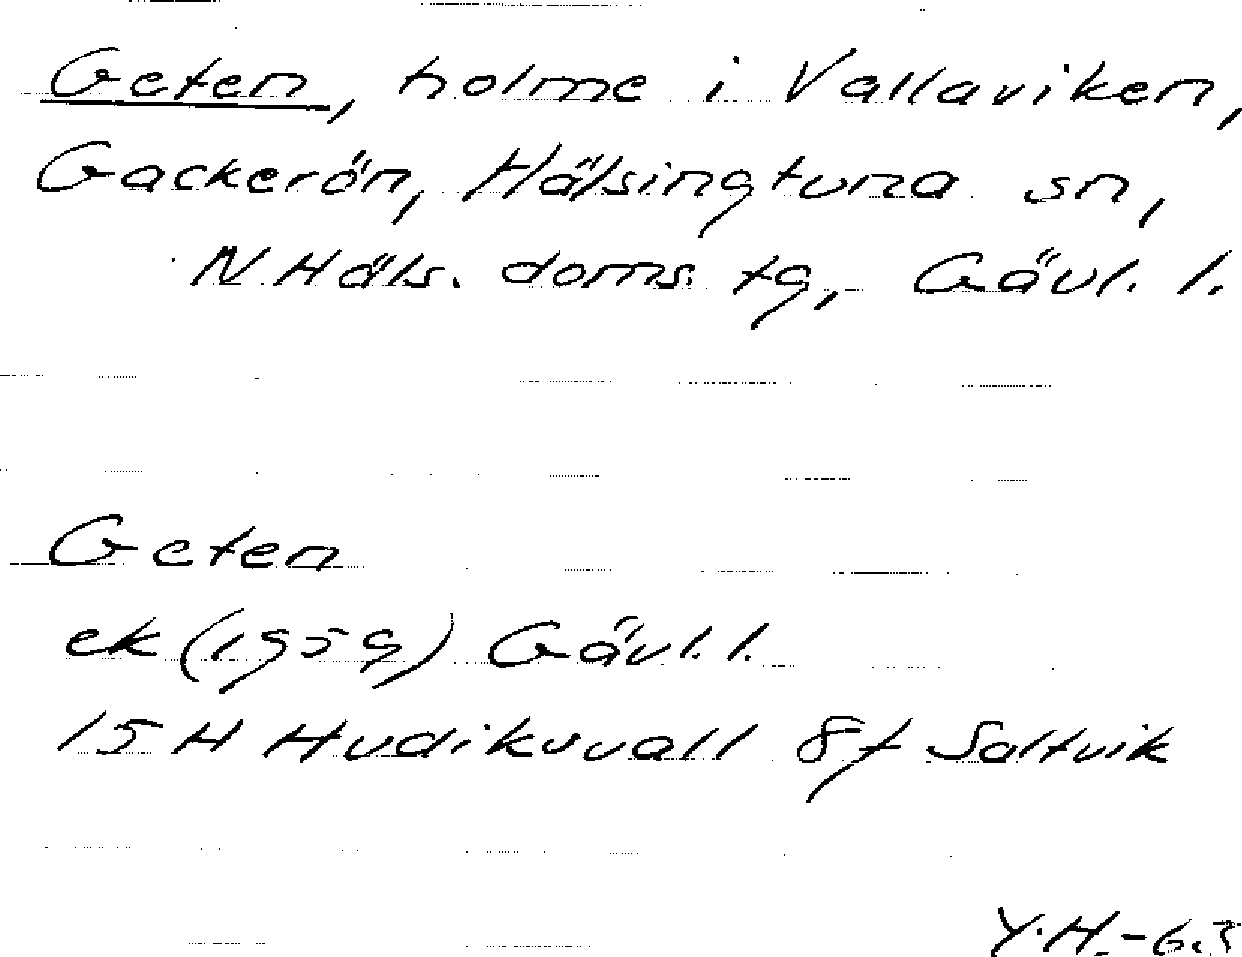 Geten, holme i Vallaviken,
Gackerön, Hälsingtuna sn,
N.Häls. doms. tg, Gävl. l.
Geten
ek (1959) Gävl. l.
15 H Hudiksvall 8f Saltvik
Y.H.-63